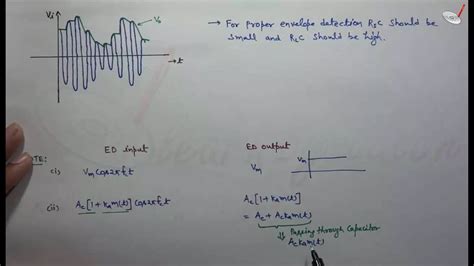 Vi
Vo
t
→ For proper envelope detection RsC should be
small and RLC should be high.
ED input
ED output
NOTE:
(i) Vm cos2πfct
Vm
Vm
(ii) Ac[1+kam(t)]cos2πfct
Ac[1+kam(t)]
= Ac + Ackam(t)
⇓ Passing through Capacitor
Ackam(t)